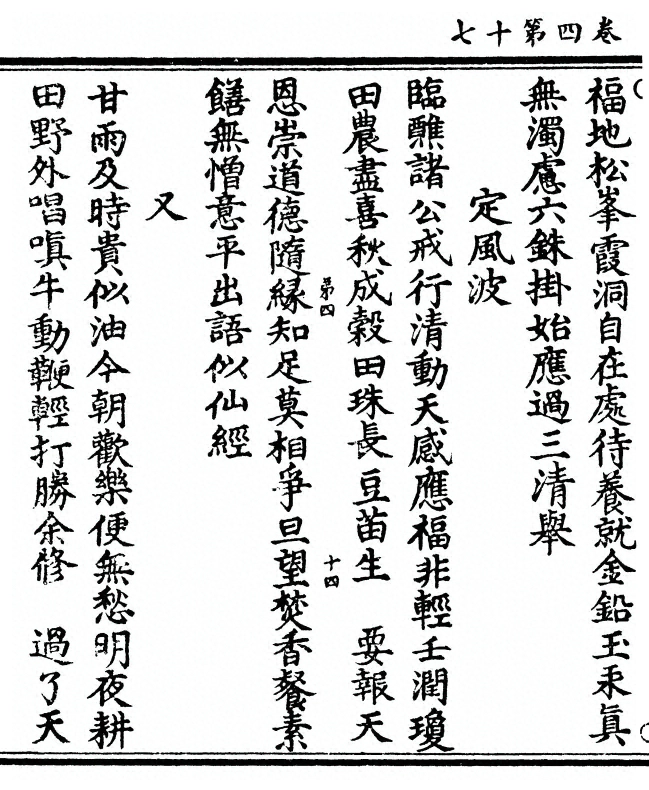 七十第四卷
福地松峯霞洞自在處待養就金鉛玉汞眞
無濁慮六銖掛始應過三清舉
定風波
臨醮諸公戒行清動天感應福非輕壬潤瓊
田農盡喜秋成穀田珠長豆苗生　要報天
第四
十四
恩崇道德隨緣知足莫相爭旦望焚香餐素
饍無憎意平出語似仙經
又
甘雨及時貴似油今朝歡樂便無愁明夜耕
田野外唱嗔牛動鞭輕打勝余修　過了天